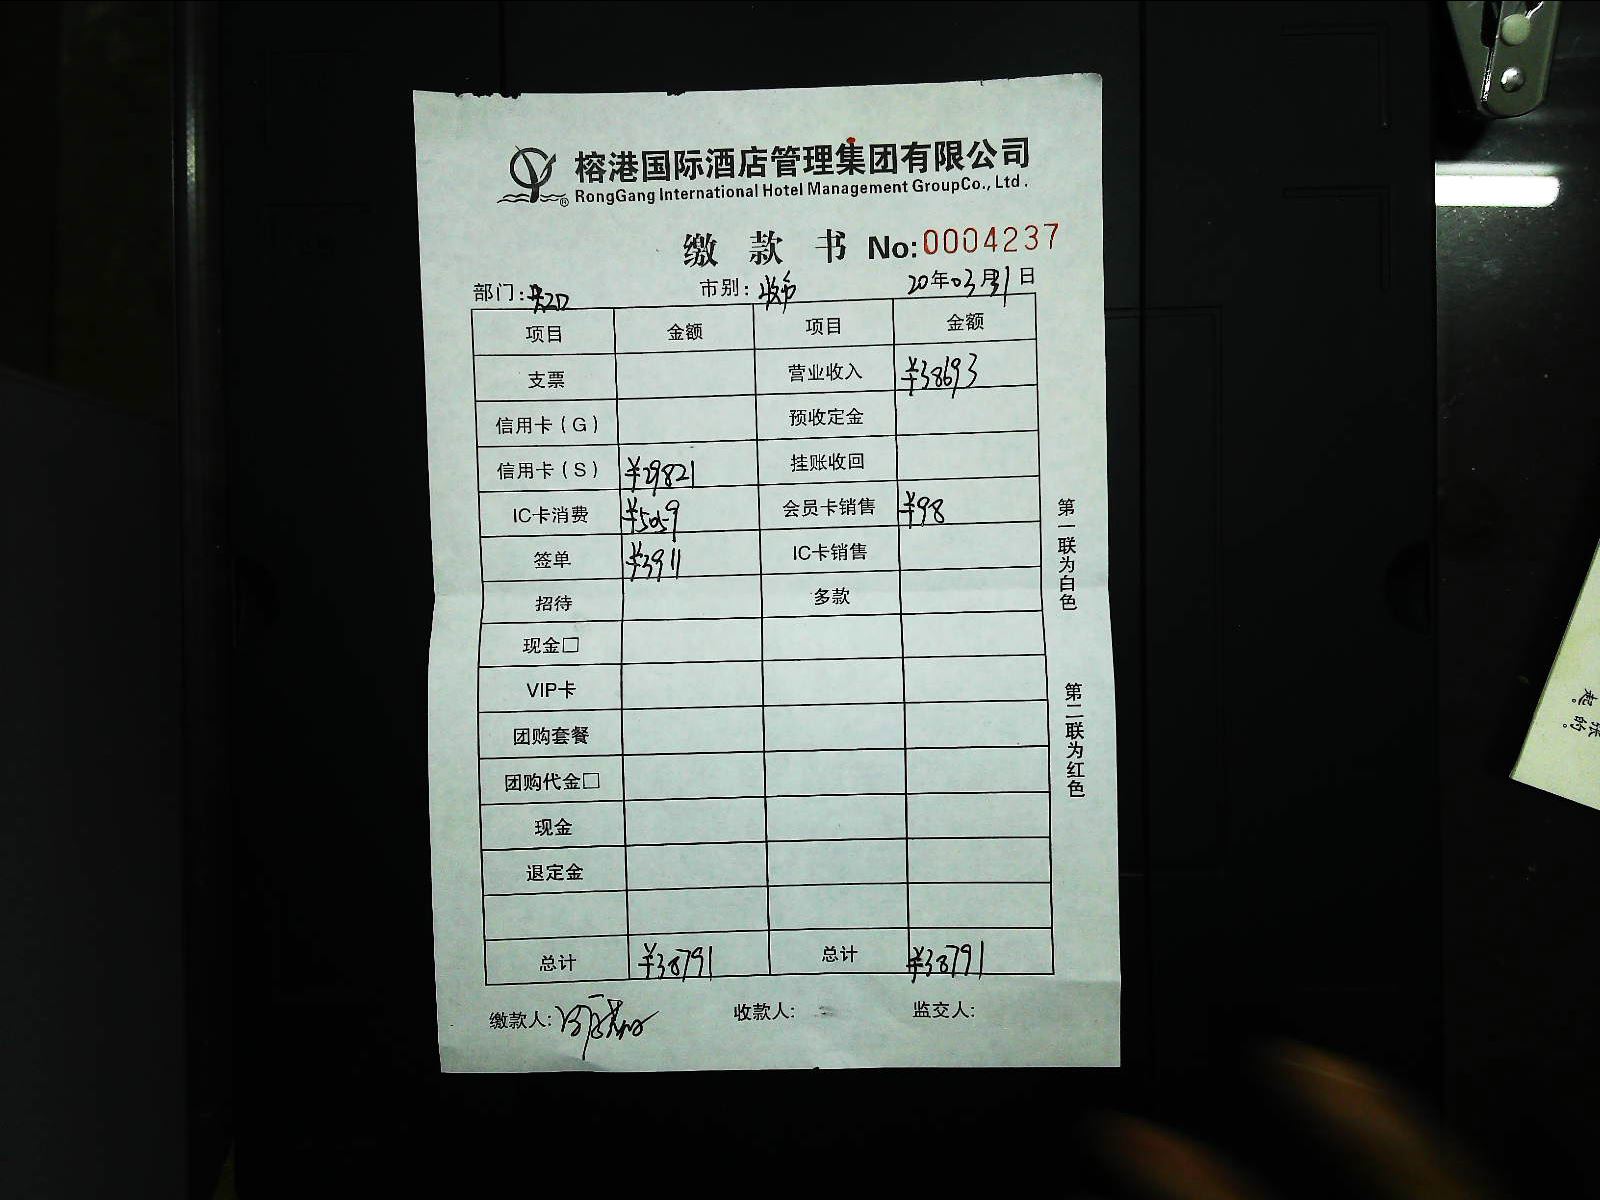 榕港国际酒店管理集团有限公司
® RongGang International Hotel Management GroupCo., Ltd.
缴款书 No:0004237
部门: 市别: 20年03月31日
项目 金额 项目 金额
支票 营业收入 ¥38693
信用卡(G) 预收定金
信用卡(S) ¥29821 挂账收回
IC卡消费 ¥5059 会员卡销售 ¥98
签单 ¥3911 IC卡销售
招待 多款
现金□
VIP卡
团购套餐
团购代金□
现金
退定金
总计 ¥38791 总计 ¥38791
缴款人: 收款人: 监交人:
第一联为白色
第二联为红色